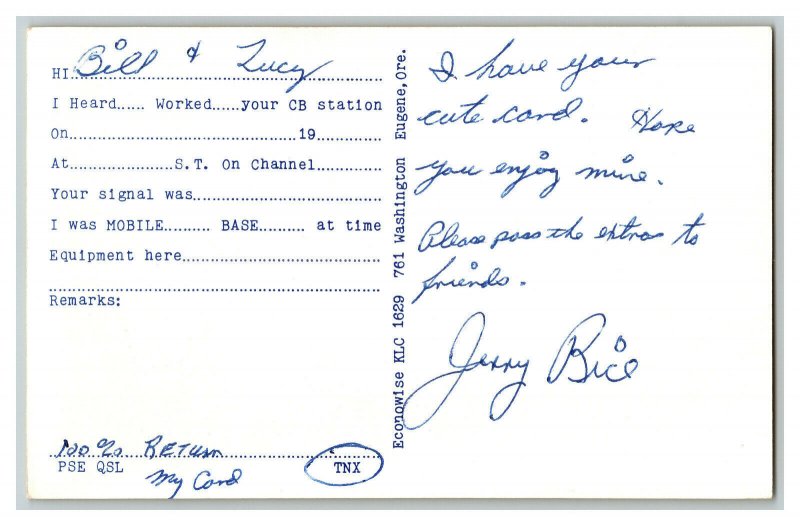 HI Bill & Lucy
I Heard..... Worked.....your CB station
On..............................19............
At..................S.T. On Channel............
Your signal was................................
I was MOBILE......... BASE......... at time
Equipment here..................................
Remarks:
100 % RETURN
PSE QSL
My Card
TNX
Econowise KLC 1629 761 Washington Eugene, Ore.
I have your
cute card. Hope
you enjoy mine.
Please pass the extras to
friends.
Jerry Bice